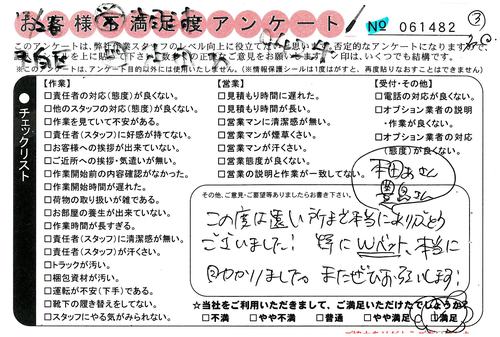 お客様不満足度アンケート
№ 061482
③
このアンケートは、弊社作業スタッフのレベル向上に役立て
※このアンケートは、アンケート目的以外には使用いたしません。(※情報保護シールは1度はがすと、再度貼りなおすことはできません)
チェックリスト
【作業】
□責任者の対応(態度)が良くない。
□他のスタッフの対応(態度)が良くない。
□作業を見ていて不安がある。
□責任者(スタッフ)に好感が持てない。
□お客様への挨拶が出来ていない。
□ご近所への挨拶・気遣いが無い。
□作業開始前の内容確認がなかった。
□作業開始時間が遅れた。
□荷物の取り扱いが雑である。
□お部屋の養生が出来ていない。
□作業時間が長すぎる。
□責任者(スタッフ)に清潔感が無い。
□責任者(スタッフ)が汗くさい。
□トラックが汚い。
□梱包資材が汚い。
□運転が不安(下手)である。
□靴下の履き替えをしてない。
□スタッフにやる気がみられない。
【営業】
□見積もり時間に遅れた。
□見積もり時間が長い。
□営業マンに清潔感が無い。
□営業マンが煙草くさい。
□営業マンが汗くさい。
□営業態度が良くない。
□営業の説明と作業が一致してない。
【受付・その他】
□電話の対応が良くない。
□オプション業者の説明
・作業が良くない。
□オプション業者の対応
(態度)が良くない。
本田さん
豊島さん
その他、ご意見・ご要望等ありましたらお書き下さい。
この度は遠い所まで本当にありがとう
ございました! 特にWベット、本当に
助かりました。またぜひお願いします!
★当社をご利用いただきまして、ご満足いただけたでしょうか?
□不満 □やや不満 □普通 □やや満足 □満足